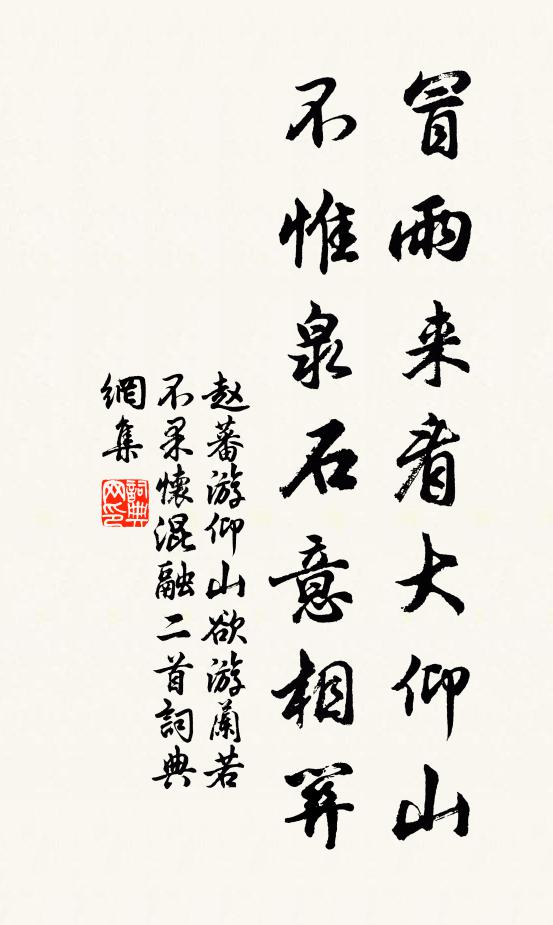 冒雨来看大仰山
不惟泉石意相關
赵蕃游仰山欲游蘭若
不果懷混融二首詞典
網集
詞典
网印